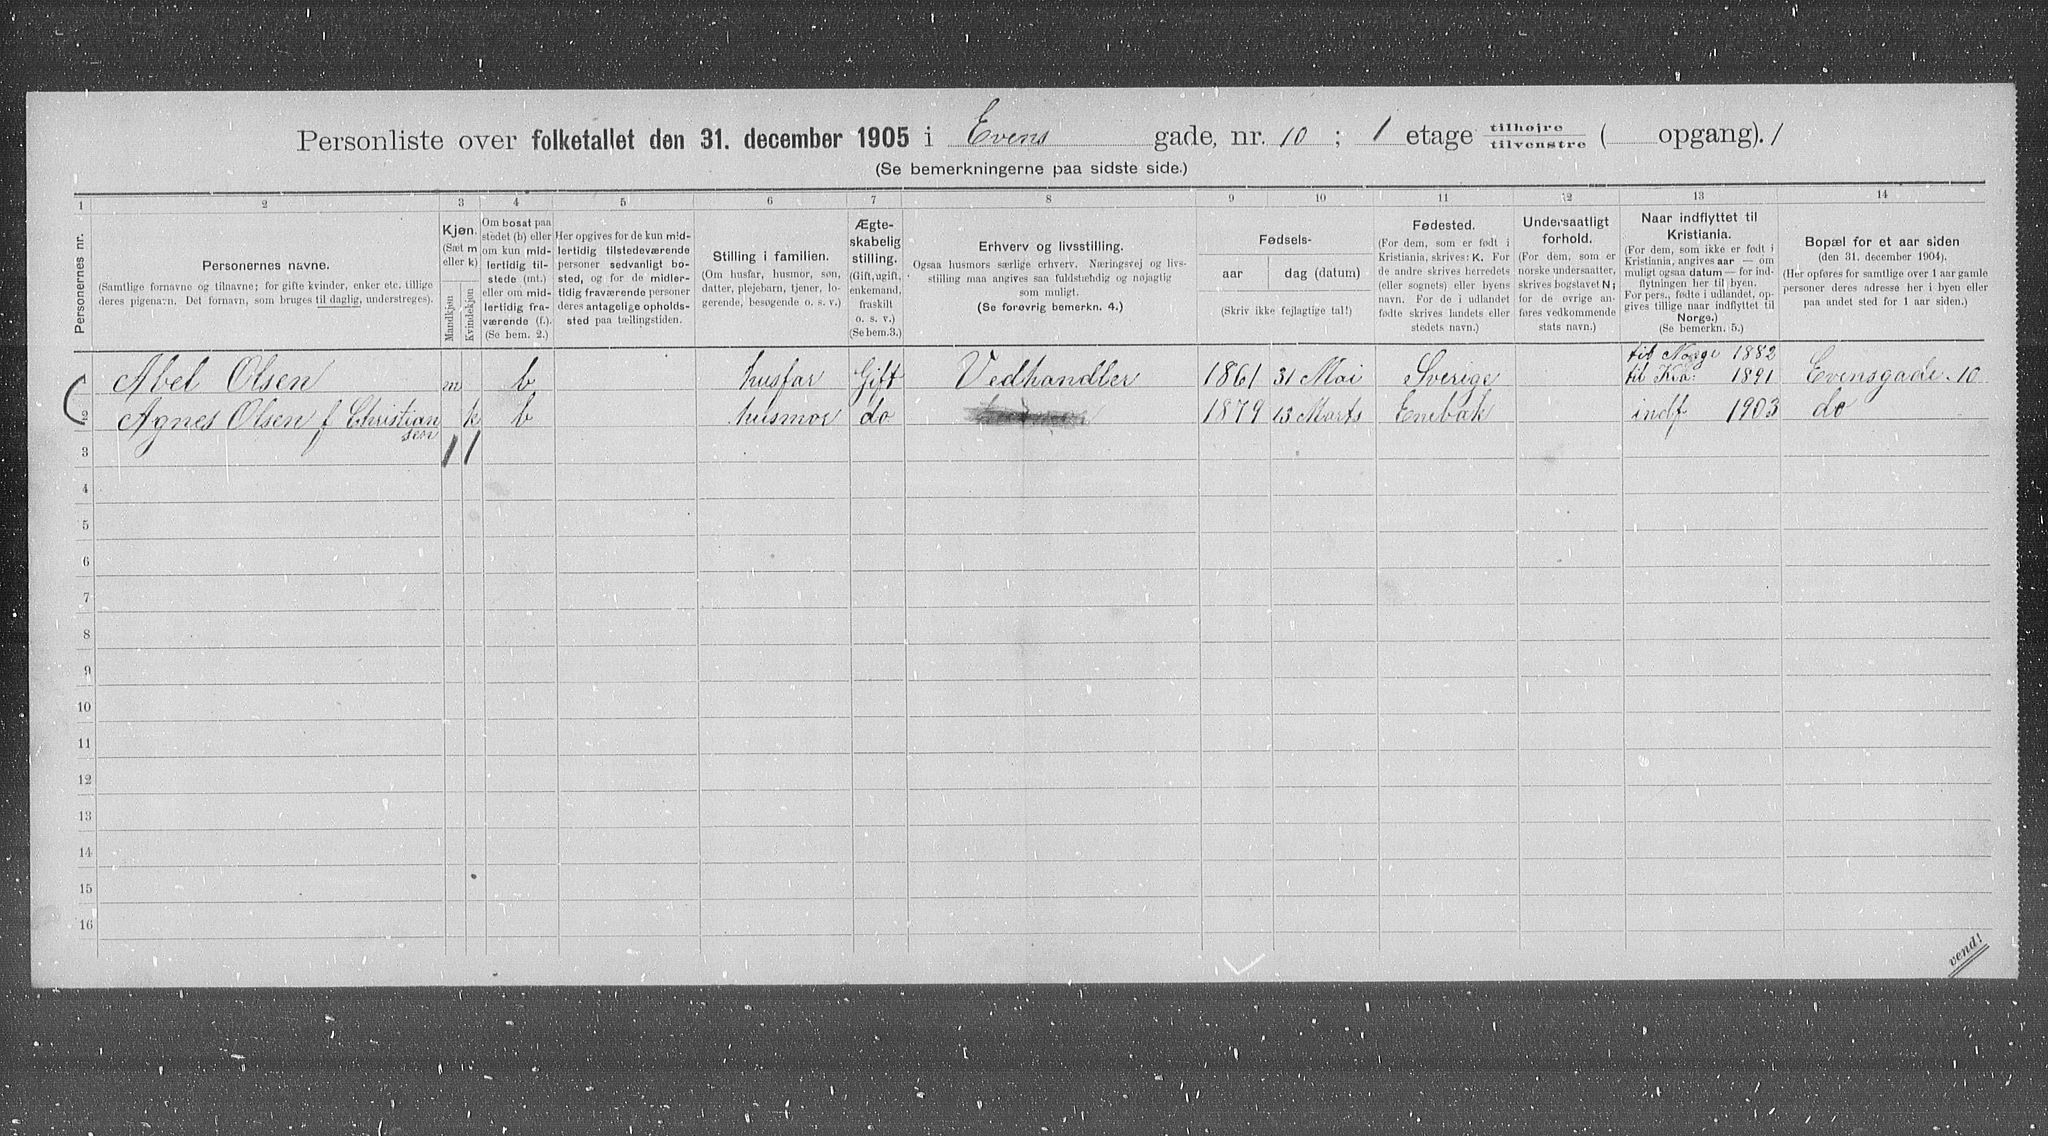 Personliste over folketallet den 31. december 1905 i Evens gade, nr. 10 ; 1 etage tilhøjre tilvenstre ( opgang). 1
(Se bemerkningerne paa sidste side.)
1 2 3 4 5 6 7 8 9 10 11 12 13 14
Personernes nr.
Personernes navne.
(Samtlige fornavne og tilnavne; for gifte kvinder, enker etc. tillige
deres pigenavn. Det fornavn, som bruges til daglig, understreges).
Kjøn.
(Sæt m
eller k)
Mandkjøn
Kvindekjøn
Om bosat paa
stedet (b) eller
om kun mid-
lertidig til-
stede (mt.)
eller om mid-
lertidig fra-
værende (f.).
(Se bem. 2.)
Her opgives for de kun mid-
lertidig tilstedeværende
personer sedvanligt bo-
sted, og for de midler-
tidig fraværende personer
deres antagelige opholds-
sted paa tællingstiden.
Stilling i familien.
(Om husfar, husmor, søn,
datter, plejebarn, tjener, lo-
gerende, besøgende o. s. v.)
Ægte-
skabelig
stilling.
(Gift, ugift,
enkemand,
fraskilt
o. s. v.)
(Se bem.3.)
Erhverv og livsstilling.
Ogsaa husmors særlige erhverv. Næringsvej og livs-
stilling maa angives saa fuldstændig og nøjagtig
som muligt.
(Se forøvrig bemerkn. 4.)
Fødsels-
aar dag (datum)
(Skriv ikke fejlagtige tal!)
Fødested.
(For dem, som er født i
Kristiania, skrives: K. For
de andre skrives herredets
(eller sognets) eller byens
navn. For de i udlandet
fødte skrives landets eller
stedets navn.)
Undersaatligt
forhold.
(For dem, som er
norske undersaatter,
skrives bogstavet N;
for de øvrige an-
føres vedkommende
stats navn.)
Naar indflyttet til
Kristiania.
(For dem, som ikke er født i
Kristiania, angives aar — om
muligt ogsaa datum — for ind-
flytningen her til byen.
For pers., fødte i udlandet, op-
gives tillige naar indflyttet til
Norge.)
(Se bemerkn. 5.)
Bopæl for et aar siden
(den 31. december 1904).
(Her opføres for samtlige over 1 aar gamle
personer deres adresse her i byen eller
paa andet sted for 1 aar siden.)
til Norge 1882
1 Abel Olsen m b husfar Gift Vedhandler 1861 31 Mai Sverige til Kra: 1891 Evensgade. 10
2 Agnes Olsen f Christian k b husmor do 1879 13 Marts Enebak indf 1903 do
sen
3 1 1
4
5
6
7
8
9
10
11
12
13
14
15
16
vend!